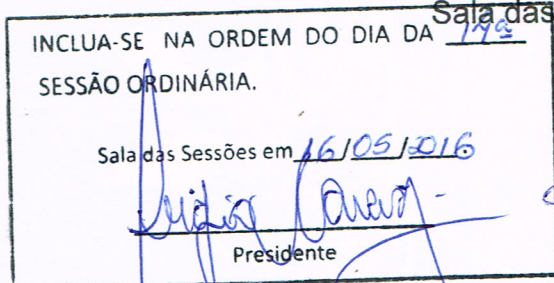 Sala das
INCLUA-SE NA ORDEM DO DIA DA 17ª
SESSÃO ORDINÁRIA.
Sala das Sessões em 16/05/2016
Presidente